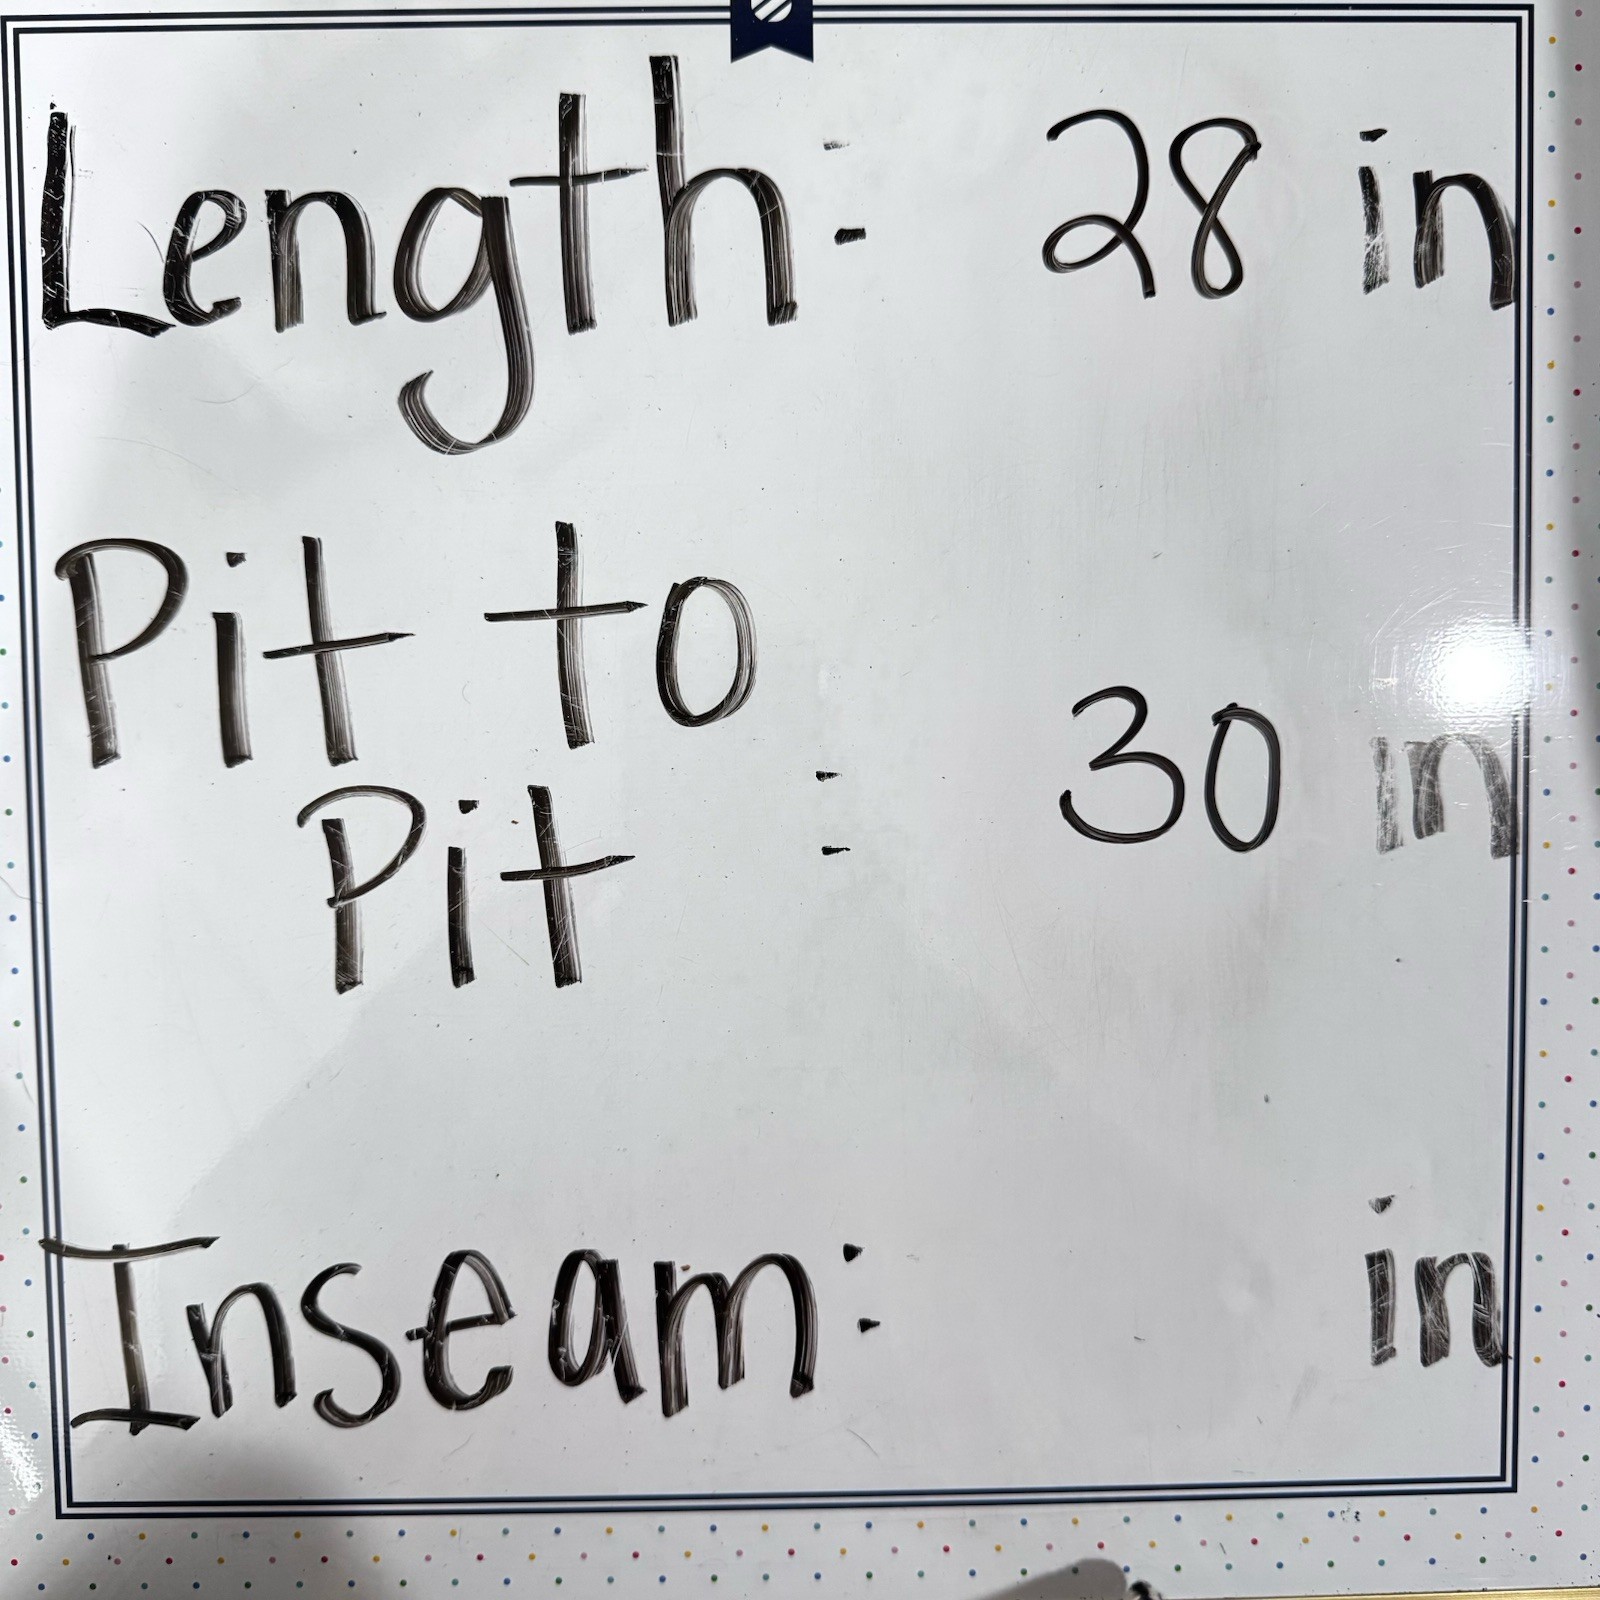 Length: 28 in
Pit to
Pit : 30 in
Inseam: in